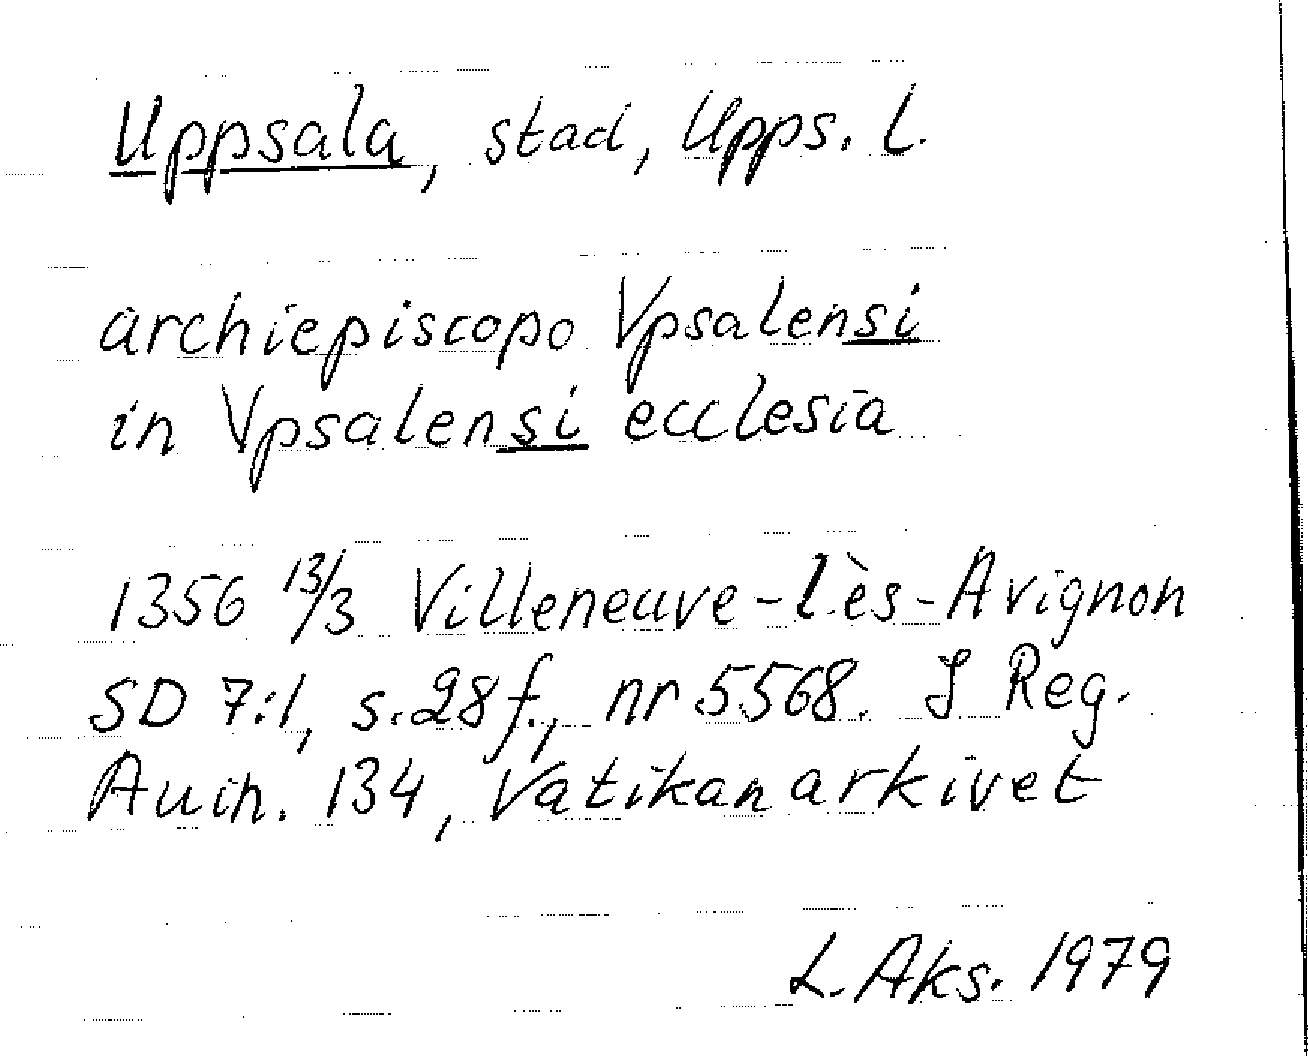 Uppsala, stad, Upps. L.
archiepiscopo Vpsalensi
in Vpsalensi ecclesia
1356 13/3 Villeneuve-lès-Avignon
SD 7:1, s.28f., nr 5568. I Reg.
Auin. 134, Vatikanarkivet
L. Aks. 1979